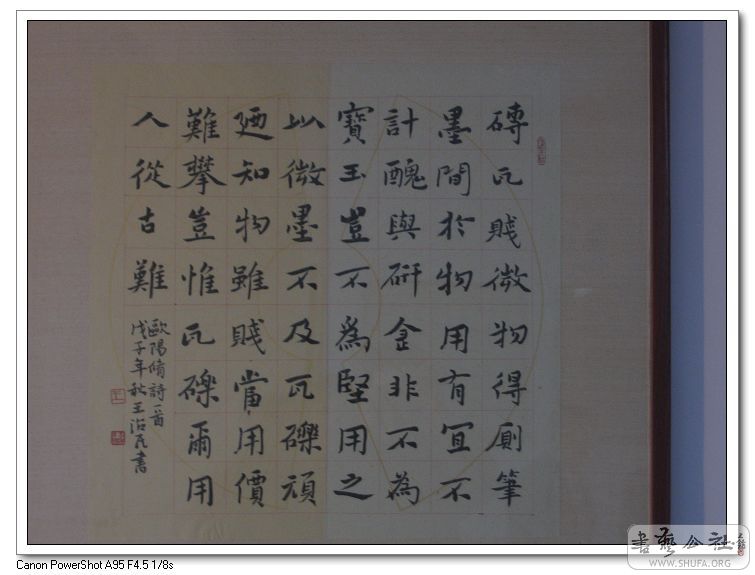 磚瓦賤微物得廁筆
墨間於物用有宜不
計醜與研金非不為
寶玉豈不爲堅用之
以微墨不及瓦礫頑
廼知物雖賤當用價
難攀豈惟瓦礫爾用
人從古難
歐陽脩詩一首
戊子年秋王治民書
書藝公社
WWW.SHUFA.ORG
Canon PowerShot A95 F4.5 1/8s